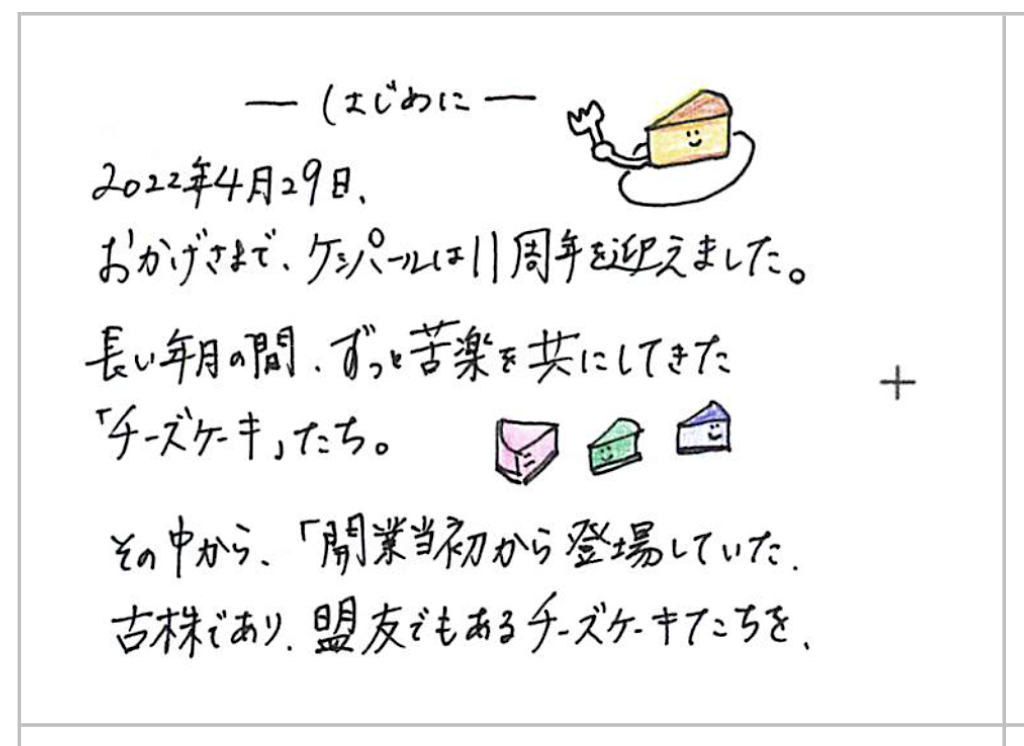 ― はじめに ―
2022年4月29日、
おかげさまで、ケシパールは11周年を迎えました。
長い年月の間、ずっと苦楽を共にしてきた
「チーズケーキ」たち。
その中から、「開業当初から登場していた、
古株であり、盟友でもあるチーズケーキたちを、